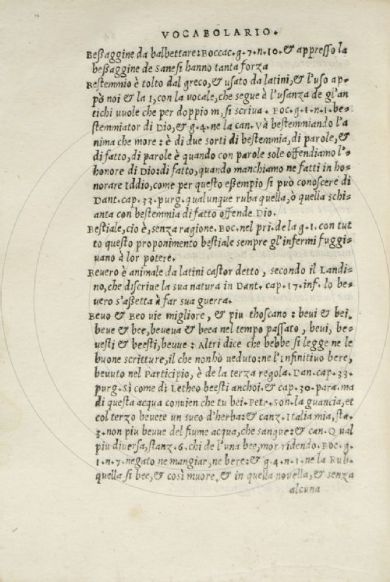 VOCABOLARIO.
Beßaggine da balbettare: Boccac. g. 7. n. 10. & appresso la
beßaggine de sanesi hanno tanta forza
Bestemmio è tolto dal greco, & usato da latini, & l'uso ap-
pò noi & la i, con la vocale, che segue è l'usanza de gl'an
tichi uuole che per doppio m, si scriua. BOC. g. 1. n. 1. be-
stemmiator di Dio, & g. 4. ne la can. và bestemmiando l'a
nima che more: è di due sorti di bestemmia, di parole, &
di fatto, di parole è quando con parole sole offendiamo l'-
honore di Dio: di fatto, quando manchiamo ne fatti in ho-
norare Iddio, come per questo eßempio si può conoscere di
Dant. cap. 33. purg. qualunque ruba quella, ò quella schi-
anta con bestemmia di fatto offende Dio.
Bestiale, cio è, senza ragione. BOC. nel pri. de la g. 1. con tut
to questo proponimento bestiale sempre gl'infermi fuggi-
uano à lor potere.
Beuero è animale da latini castor detto, secondo il Landi-
no, che discriue la sua natura in Dant. cap. 17. inf. lo be-
uero s'aßetta è far sua guerra.
Beuo & Beo uie migliore, & piu thoscano: beui & bei,
beue & bee, beueua & beea nel tempo passato, beui, be-
uesti & beesti, beuue: Altri dice che bebbe si legge ne le
buone scritture, il che non hò ueduto: ne l'infinitiuo bere,
beuuto nel Participio, è de la terza regola. Dan. cap. 33.
purg. sì come di Letheo beesti anchoi. & cap. 30. para. ma
di questa acqua conuien che tu bei. Petr. son. la guancia, et
col terzo beuete un suco d'herba: & canz. Italia mia, sta.
3. non piu beuue del fiume acqua, che sangue: & can. Qual
piu diuersa, stanz. 6. chi de l'una bee, mor ridendo. BOC. g.
1. n. 7. negato ne mangiar, ne bere: & g. 4. n. 1. ne la Rub.
quella si bee, & così muore, & in quella nouella, & senza
alcuna